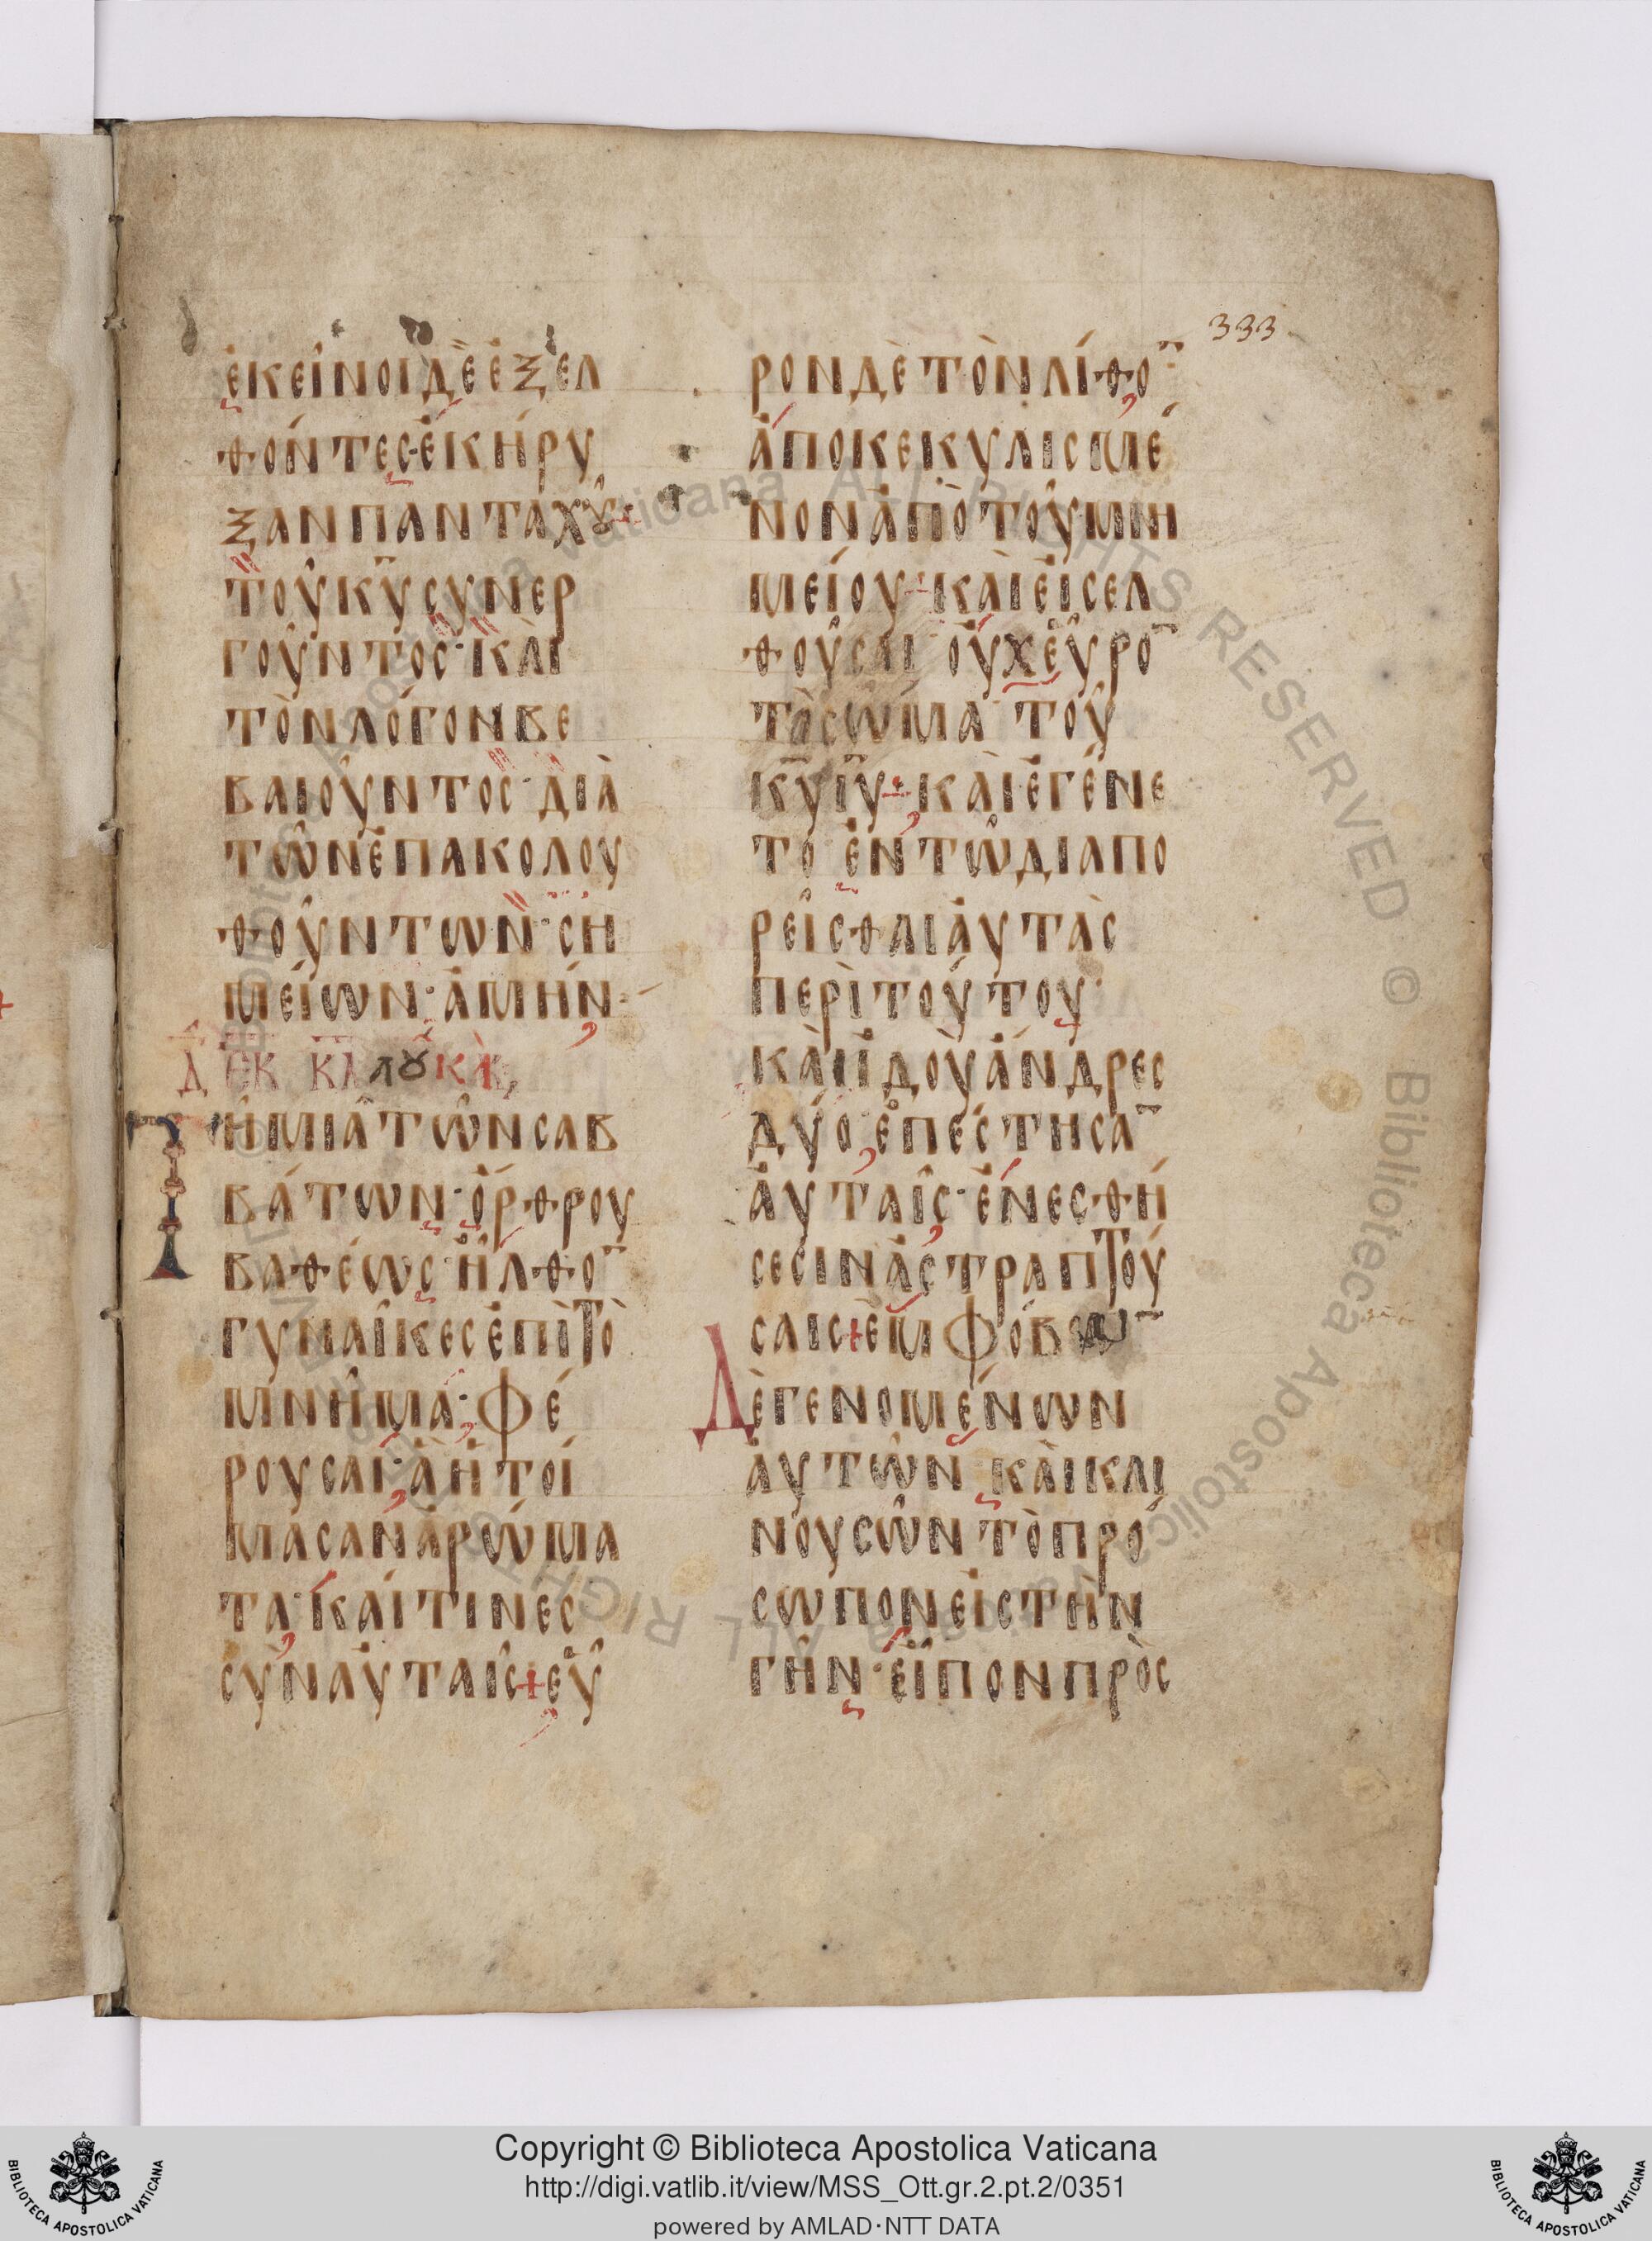 333
ἐκεῖνοι δὲ ἐξελ
θόντες ἐκήρυ
ξαν πανταχοῦ·
τοῦ κ̅υ̅ συνερ
γοῦντος· καὶ
τὸν λόγον βε
βαιοῦντος· διὰ
τῶν ἐπακολου
θούντων· ση
μείων· ἀμήν·
Δ ἐκ κ̅λ̅ουκὰν
Τῆ μιᾶ τῶν σαβ
βάτων· ὄρθρου
βαθέως ἦλθο̅
γυναῖκες ἐπὶ τὸ
μνῆμα· φέ
ρουσαι· ἃ ἡτοί
μασαν ἀρώμα
τα· καί τινες
σὺν αὐταῖς + εὗ
ρον δὲ τὸν λίθο̅
ἀποκεκυλισμέ
νον ἀπὸ τοῦ μνη
μείου· καὶ εἰσελ
θοῦσαι οὐχ εὗρο̅
τὸ σῶμα τοῦ
κ̅υ̅ ι̅υ̅· καὶ ἐγένε
το ἐν τῷ διαπο
ρεῖσθαι αὐτὰς
περὶ τούτου·
καὶ ἰδοὺ ἄνδρες
δύο ἐπέστησα̅
αὐταῖς· ἐν ἐσθή
σεσιν ἀστραπτού
σαις + ἐμφόβω̅
Δὲ γενομένων
αὐτῶν καὶ κλι
νουσῶν τὸ πρό
σωπον εἰς τὴν
γῆν· εἶπον πρὸς
Copyright © Biblioteca Apostolica Vaticana
http://digi.vatlib.it/view/MSS_Ott.gr.2.pt.2/0351
powered by AMLAD·NTT DATA
BIBLIOTECA APOSTOLICA VATICANA
BIBLIOTECA APOSTOLICA VATICANA